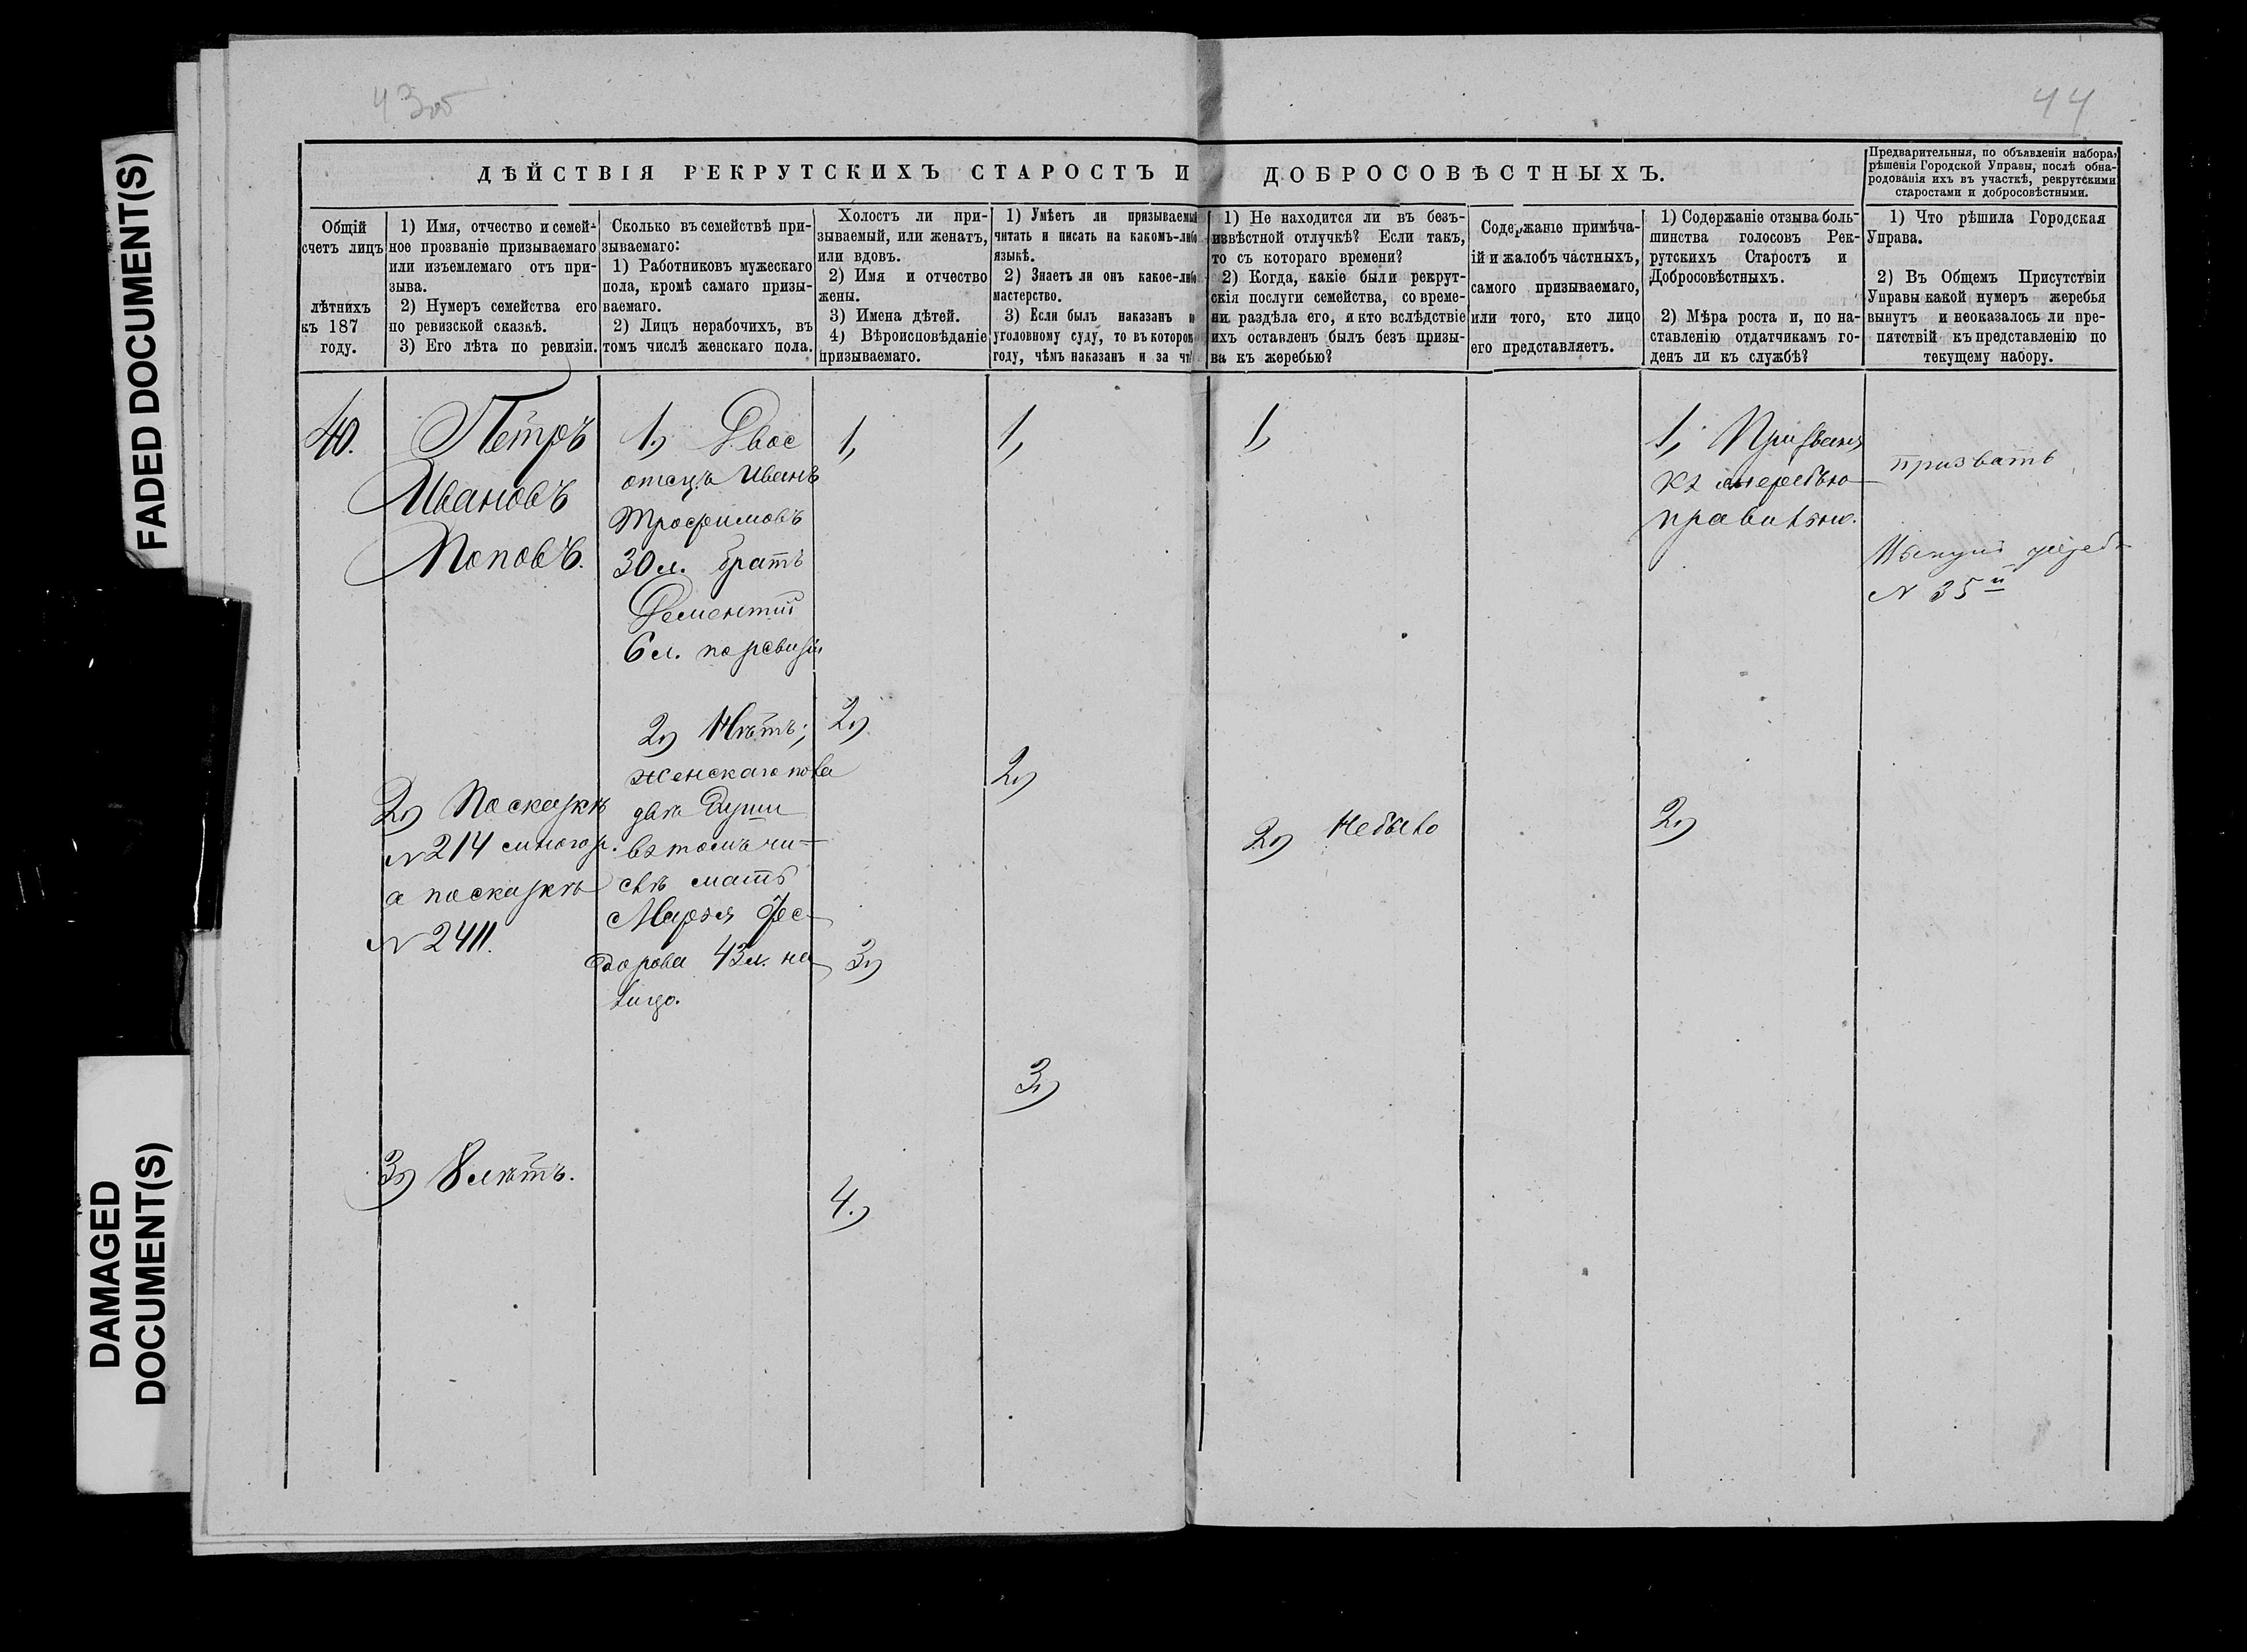 43об
44
FADED DOCUMENT(S)
DAMAGED
DOCUMENT(S)
ДѢЙСТВІЯ РЕКРУТСКИХЪ СТАРОСТЪ И ДОБРОСОВѢСТНЫХЪ.
Предварительныя, по объявленіи набора,
рѣшенія Городской Управы, послѣ обна-
родованія ихъ въ участкѣ, рекрутскими
старостами и добросовѣстными.
Общій
счетъ лицъ
лѣтнихъ
къ 187
году.
1) Имя, отчество и семей-
ное прозваніе призываемаго
или изъемлемаго отъ при-
зыва.
2) Нумеръ семейства его
по ревизской сказкѣ.
3) Его лѣта по ревизіи.
Сколько въ семействѣ при-
зываемаго:
1) Работниковъ мужескаго
пола, кромѣ самаго призы-
ваемаго.
2) Лицъ нерабочихъ, въ
томъ числѣ женскаго пола.
Холостъ ли при-
зываемый, или женатъ,
или вдовъ.
2) Имя и отчество
жены.
3) Имена дѣтей.
4) Вѣроисповѣданіе
призываемаго.
1) Умѣетъ ли призываемый
читать и писать на какомъ-либо
языкѣ.
2) Знаетъ ли онъ какое-либо
мастерство.
3) Если былъ наказанъ п
уголовному суду, то въ котором
году, чѣмъ наказанъ и за чт
1) Не находится ли въ безъ-
извѣстной отлучкѣ? Если такъ,
то съ котораго времени?
2) Когда, какіе были рекрут-
скія послуги семейства, со време-
ни раздѣла его, я кто вслѣдствіе
ихъ оставленъ былъ безъ призы-
ва къ жеребью?
Содержаніе примѣча-
ій и жалобъ частныхъ,
самого призываемаго,
или того, кто лицо
его представляетъ.
1) Содержаніе отзыва боль-
шинства голосовъ Рек-
рутскихъ Старостъ и
Добросовѣстныхъ.
2) Мѣра роста и, по на-
ставленію отдатчикамъ го-
денъ ли къ службѣ?
1) Что рѣшила Городская
Управа.
2) Въ Общемъ Присутствіи
Управы какой нумеръ жеребья
вынутъ и неоказалось ли пре-
пятствій къ представленію по
текущему набору.
40.
Петръ
Ивановъ
Поповъ.
2) По сказкѣ
№ 214
а по сказкѣ
№ 2411.
3) 8 лѣтъ.
1) Двое
отецъ Иванъ
Трофимовъ
30 л. братъ
Дементій
6 л. по ревизіи
2) Нѣтъ;
женскаго пола
двѣ души
въ томъ чи-
слѣ мать
Марья Фео-
дорова 43 л. на
лицо.
1,
2)
3)
4.)
1,
2)
3)
1,
2) Небыло
1, Призванъ
къ жеребью
правильно.
2)
призвать
Вынулъ жереб
№ 35й